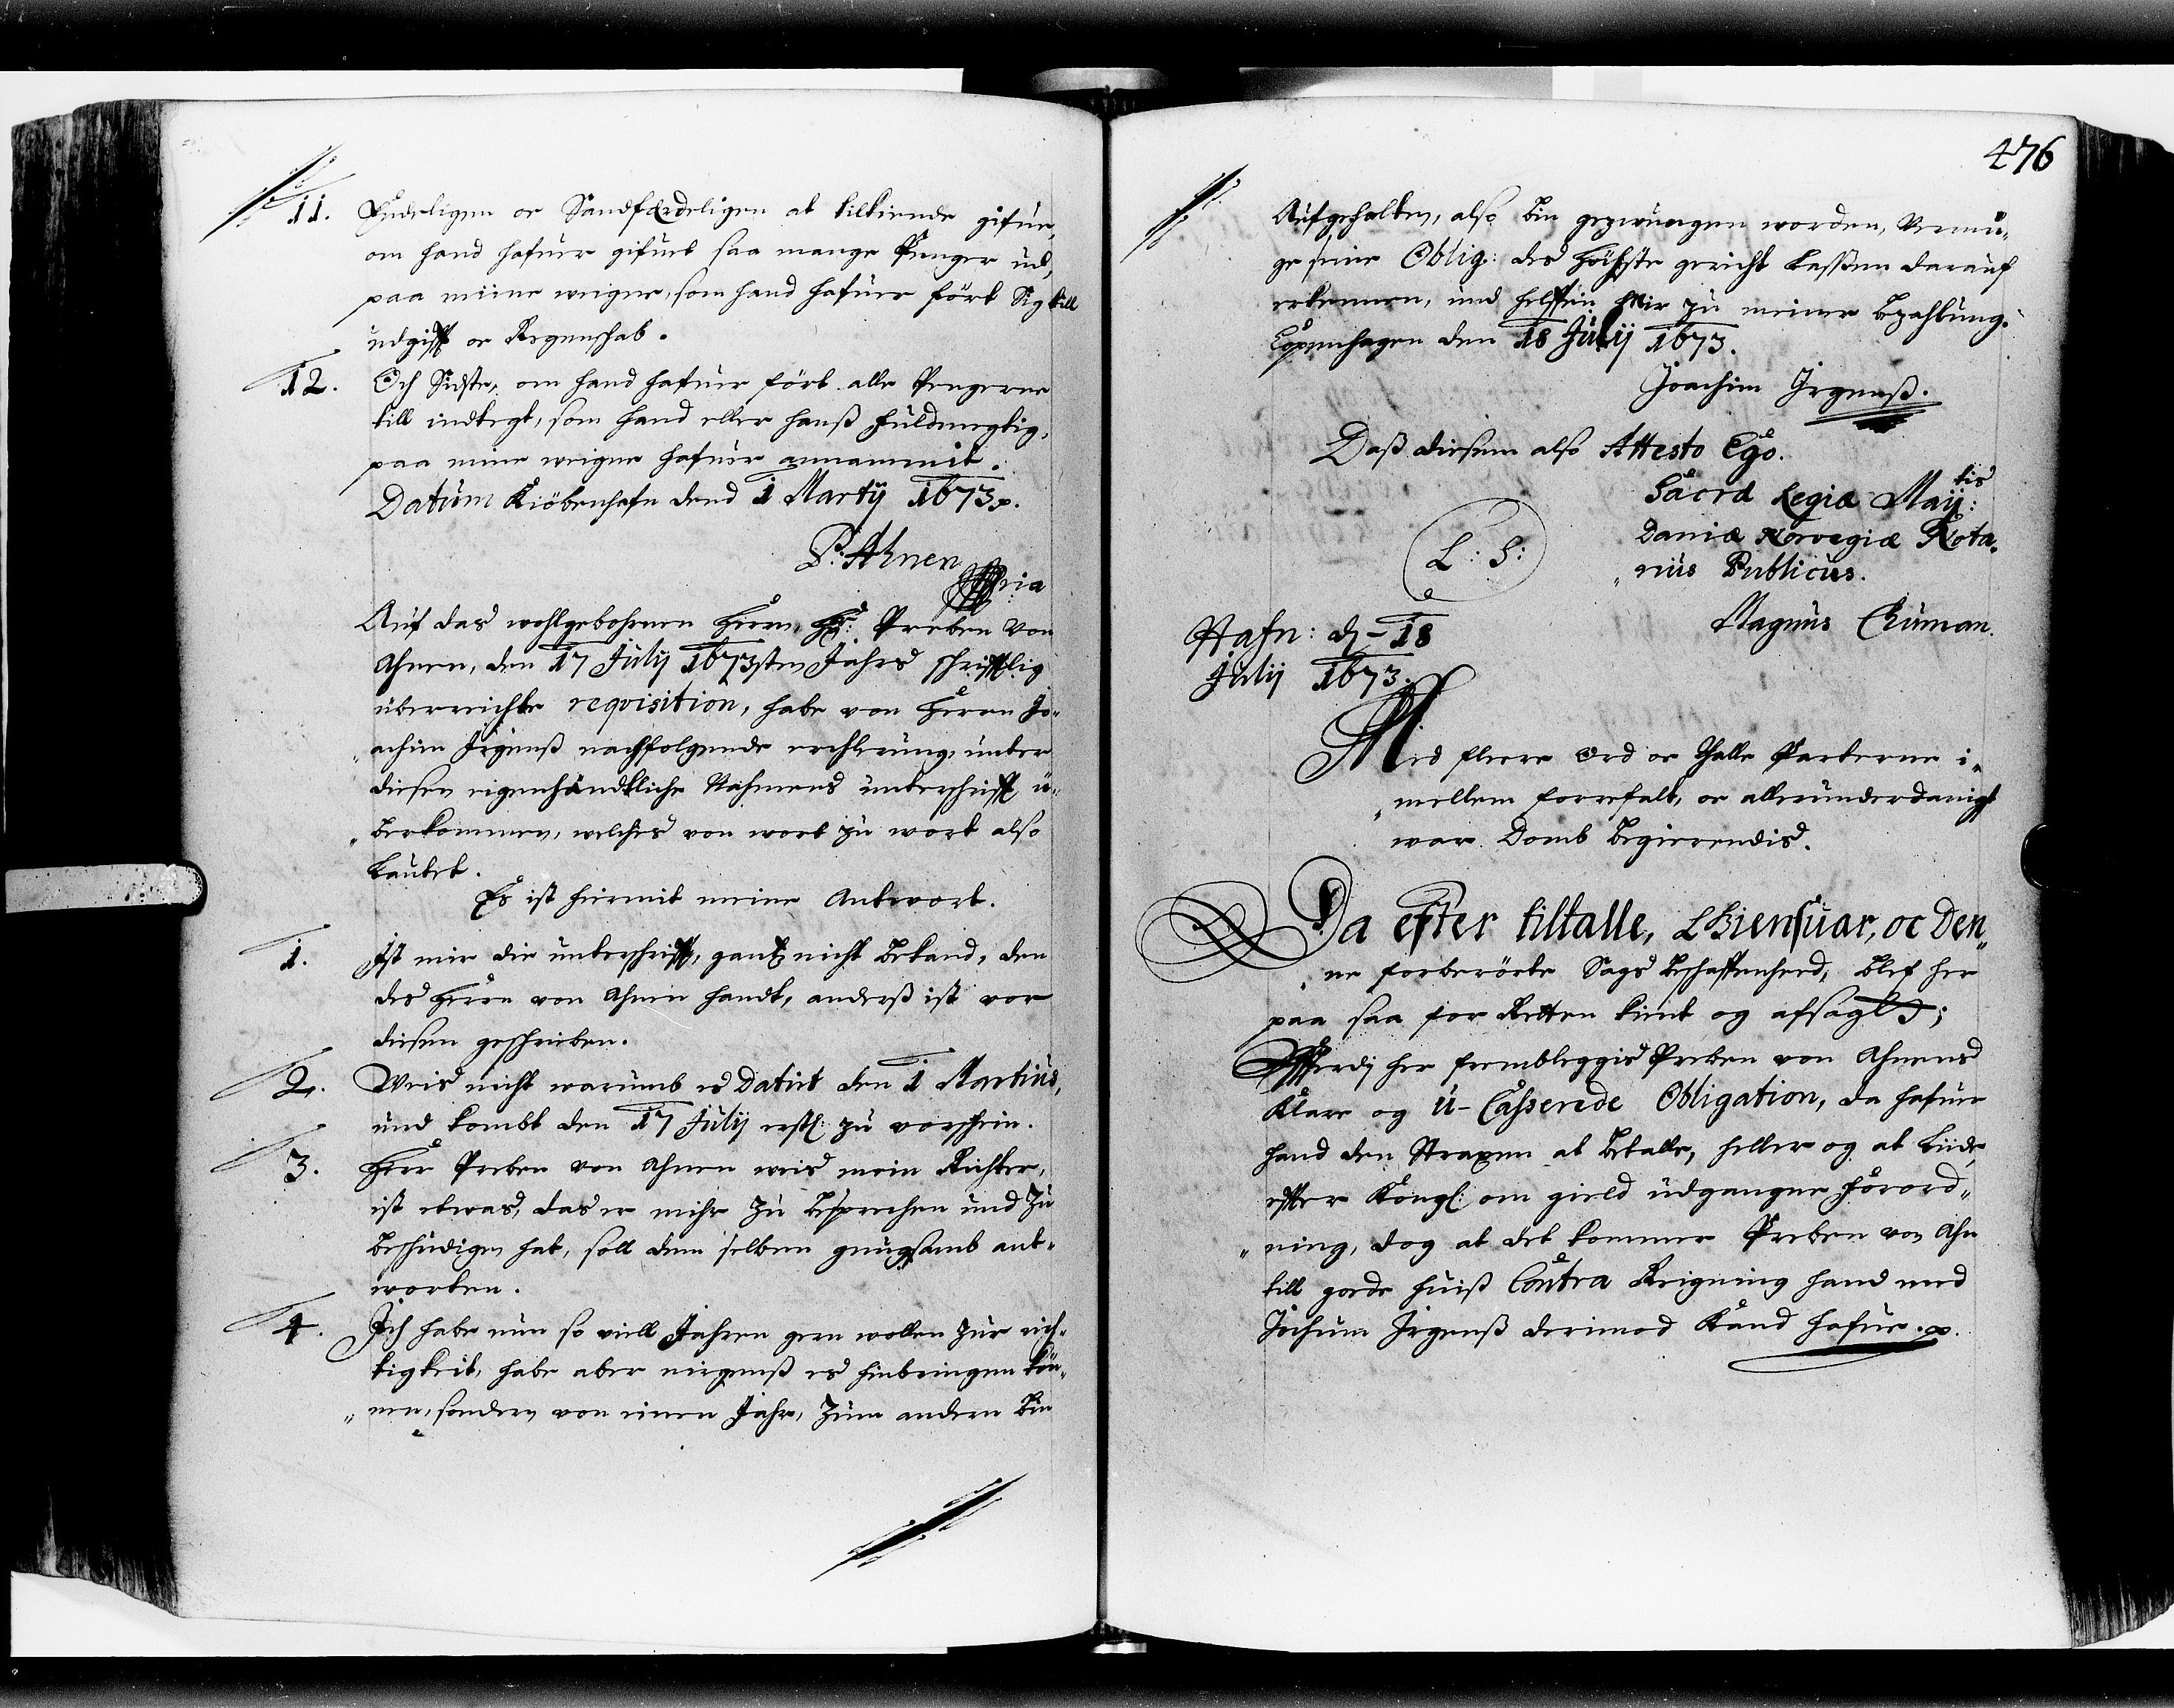 11. Endeligen oc Sandfærdeligen at tilkiende gifue,
om hand hafuer gifuet saa mange Penger ud,
paa miine weigne, som hand hafuer ført Sig till
udgifft oc Regenschab.
12. Och Sidste, om hand hafuer ført alle Pengerne
till indtegt, som hand eller hanß fuldmegtig,
paa mine weigne hafuer annammit.
Datum Kiöbenhafn dend 1 Martij 1673.
P. Ahnen
Auf das wohlgebohrnen Herrn, Hr: Preben von
Ahnen, den 17 Julij 1673sten Jahrs schrifftlig
überreichte reqvisition, habe von Herrn Jo-
achim Irgenß nachfolgende erklerung, unter
diesen eigenhändtliche Nahmens unterschrifft ü-
berkommen, welches von wort zu wort also
lautet.
Es ist hiermit meine Antwort.
1. Ist mir die unterschrifft, gantz nicht bekand, den
des Herrn von Ahnen handt, anderß ist vor
diesem geschrieben.
2. Weis nicht warumb es Datirt den 1 Martius,
und kombt den 17 Julij erstl: zu vorschein.
3. Herr Preben von Ahnen weis mein Richter,
ist etwas, das er mihr zu besprechen und zu
beschudigen hat, soll dem selben gnugsamb ant-
worten.
4. Ich habe nun so viell Jahren gern wollen zur rich-
tigkeit, habe aber nirgenß es hinbringen kön-
nen, sondern von einen Jahr, zum andern bin
476
Aufgehalten, also bin gezwungen worden, Vermü-
ge seine Oblig: des Höchste gericht lassen darauf
erkennen, und helffen Mir zu meiner bezahlung.
Copenhagen den 18 Julij 1673.
Joachim Irgenß.
Daß diesem also Attesto Ego.
Sacræ Regiæ Maij:tis
Daniæ Norvegiæ Nota-
rius Publicus.
L: S:
Magnus Chuman.
Hafn: d - 18
Julij 1673.
Med fleere Ord oc Thalle Parterne i-
mellem forrefalt, oc allerunderdanigst
war Domb begierendis.
Da efter tiltalle, Giensuar, oc Den-
ne forberørte Sags beschaffenheed, blef her
paa saa for Retten kient og afsagt;
Efterdj her frembleggis Preben von Ahnens
Klare og u-Casserede Obligation, da hafuer
hand den Straxen at betalle, heller og at liide,
effter Kongl: om gield udgangne Forord-
ning, dog at det kommer Preben von Ahn
till gode huiß Contra Reigning hand med
Jochum Irgenß derimod Kand hafue.